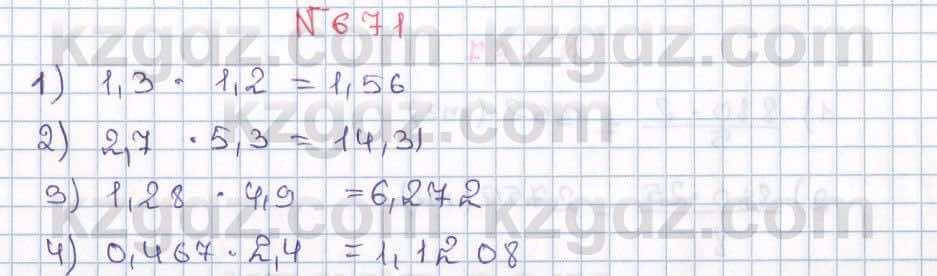 №671
kzgdz.com kzgdz.com
1) 1,3 · 1,2 = 1,56
kzgdz.com
2) 2,7 · 5,3 = 14,31
3) 1,28 · 4,9 = 6,272
kzgdz.com kzgdz.com
4) 0,467 · 2,4 = 1,1208